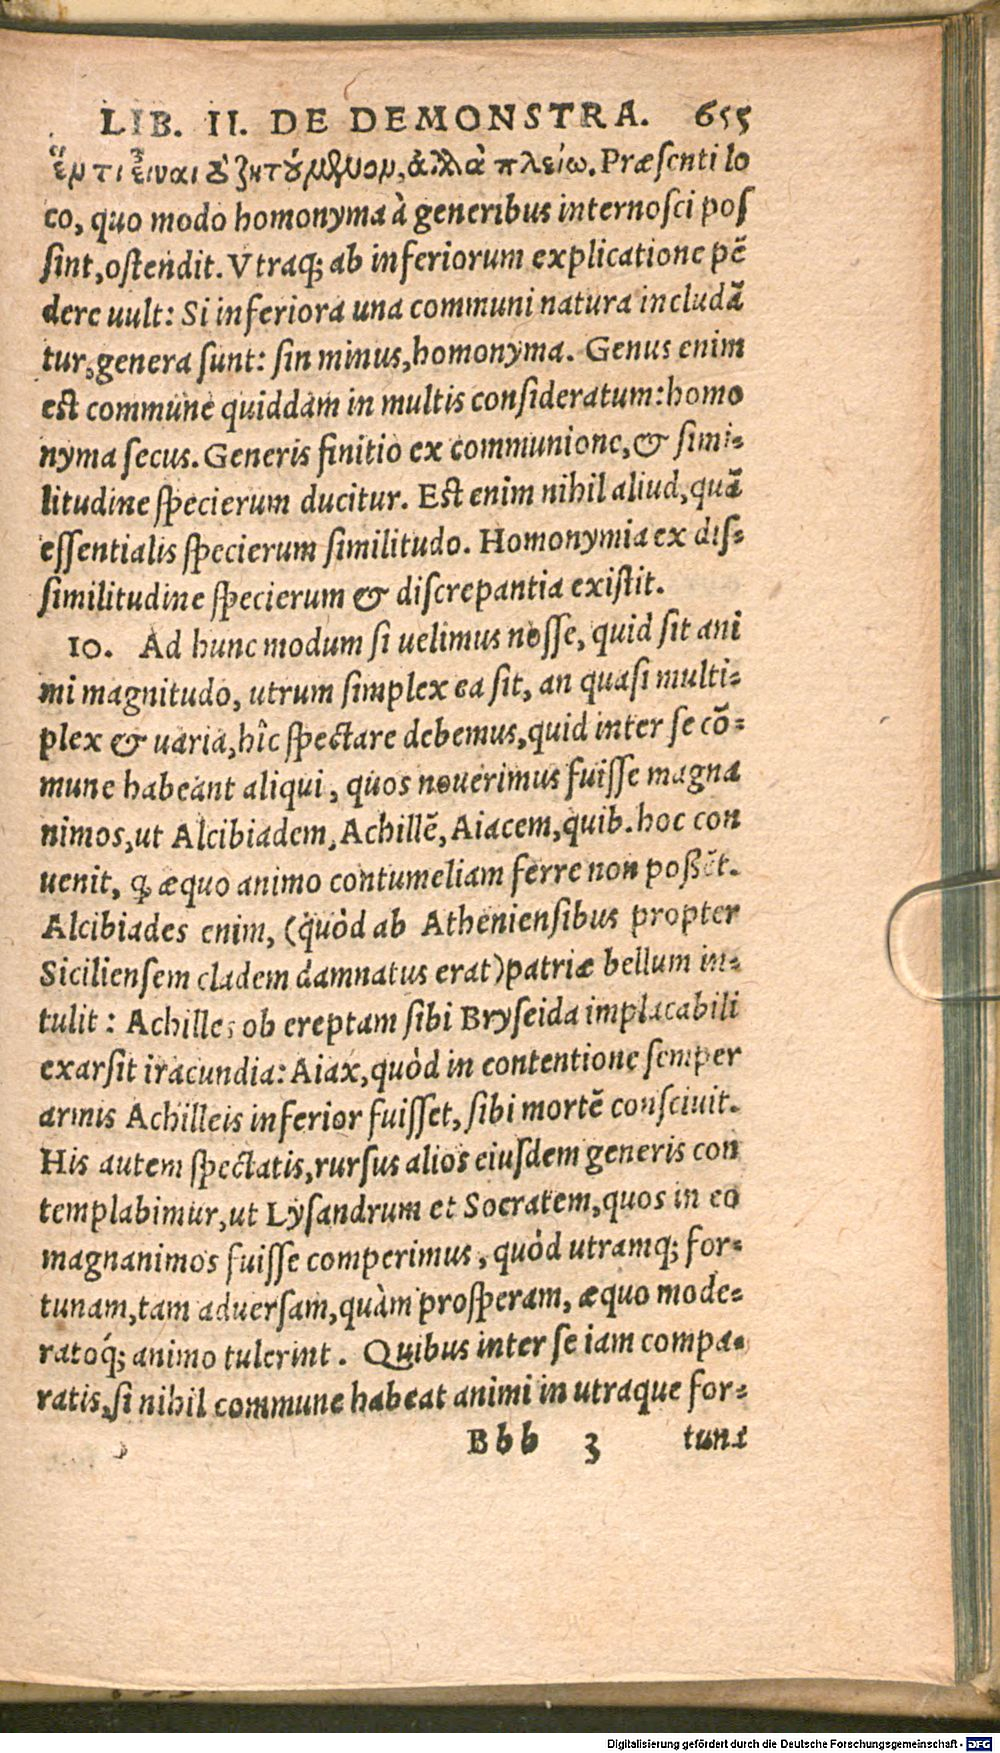 LIB. II. DE DEMONSTRA. 655
ἕν τι εἶναι ὃ ζητούμενον, ἀλλὰ πλείω. Præsenti lo
co, quo modo homonyma à generibus internosci pos
sint, ostendit. Vtraq; ab inferiorum explicatione pẽ
dere uult: Si inferiora una communi natura includã
tur, genera sunt: sin minus, homonyma. Genus enim
est commune quiddam in multis consideratum: homo
nyma secus. Generis finitio ex communione, & simi-
litudine specierum ducitur. Est enim nihil aliud, quã
essentialis specierum similitudo. Homonymia ex dis-
similitudine specierum & discrepantia existit.
10. Ad hunc modum si uelimus nosse, quid sit ani
mi magnitudo, utrum simplex ea sit, an quasi multi-
plex & uaria, hîc spectare debemus, quid inter se cõ-
mune habeant aliqui, quos nouerimus fuisse magna
nimos, ut Alcibiadem, Achillẽ, Aiacem, quib. hoc con
uenit, ꝙ æquo animo contumeliam ferre non possẽt.
Alcibiades enim, (quòd ab Atheniensibus propter
Siciliensem cladem damnatus erat) patriæ bellum in-
tulit: Achilles ob ereptam sibi Bryseida implacabili
exarsit iracundia: Aiax, quòd in contentione semper
armis Achilleis inferior fuisset, sibi mortẽ consciuit.
His autem spectatis, rursus alios eiusdem generis con
templabimur, ut Lysandrum et Socratem, quos in eo
magnanimos fuisse comperimus, quòd utramq; for-
tunam, tam aduersam, quàm prosperam, æquo mode-
ratoq́; animo tulerint. Quibus inter se iam compa-
ratis, si nihil commune habeat animi in utraque for-
Bbb 3 tunæ
Digitalisierung gefördert durch die Deutsche Forschungsgemeinschaft - DFG